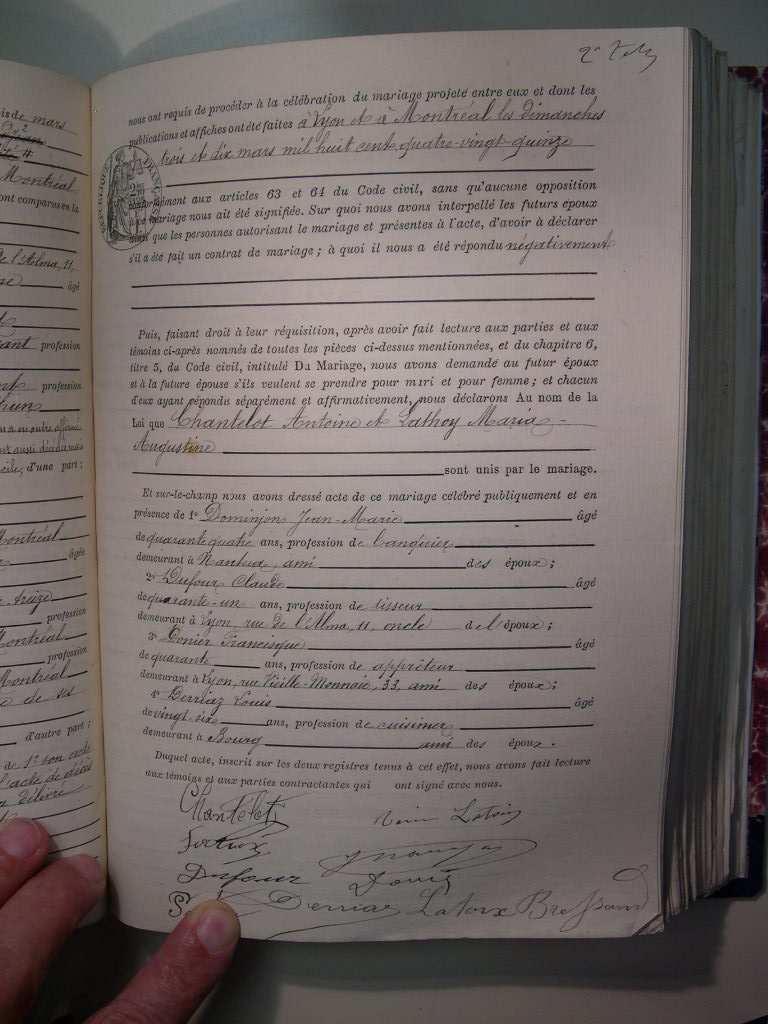 is de mars
Montréal
ont comparu en la
de l'Alma, 11,
âgé
profession
profession
n a en outre affirmé
domicile; d'une part:
Montréal
âgée
treize
profession
Montréal
profession
Montréal
de ses
d'autre part;
de 1° son acte
l'acte de décès
délivré
nous ont requis de procéder à la célébration du mariage projeté entre eux et dont les
publications et affiches ont été faites à Lyon et à Montréal les dimanches
trois et dix mars mil huit cent quatre-vingt-quinze
conformément aux articles 63 et 64 du Code civil, sans qu'aucune opposition
à ce mariage nous ait été signifiée. Sur quoi nous avons interpellé les futurs époux
ainsi que les personnes autorisant le mariage et présentes à l'acte, d'avoir à déclarer
s'il a été fait un contrat de mariage; à quoi il nous a été répondu négativement
Puis, faisant droit à leur réquisition, après avoir fait lecture aux parties et aux
témoins ci-après nommés de toutes les pièces ci-dessus mentionnées, et du chapitre 6,
titre 5, du Code civil, intitulé Du Mariage, nous avons demandé au futur époux
et à la future épouse s'ils veulent se prendre pour mari et pour femme; et chacun
d'eux ayant répondu séparément et affirmativement, nous déclarons Au nom de la
Loi que Chantelot Antoine et Lathoy Maria-
Augustine
sont unis par le mariage.
Et sur-le-champ nous avons dressé acte de ce mariage célébré publiquement et en
présence de 1° Dominjon Jean-Marie âgé
de quarante quatre ans, profession de banquier
demeurant à Nantua, ami des époux;
2° Dufour Claude âgé
de quarante-un ans, profession de tisseur
demeurant à Lyon, rue de l'Alma, 11, oncle de l'époux;
3° Donier Francisque âgé
de quarante ans, profession de apprêteur
demeurant à Lyon, rue Vieille-Monnaie, 33, ami des époux;
4° Derriaz Louis âgé
de vingt-six ans, profession de cuisinier
demeurant à Bourg ami des époux.
Duquel acte, inscrit sur les deux registres tenus à cet effet, nous avons fait lecture
aux témoins et aux parties contractantes qui ont signé avec nous.
Chantelot
Dufour
Derriaz Latoix Bressand